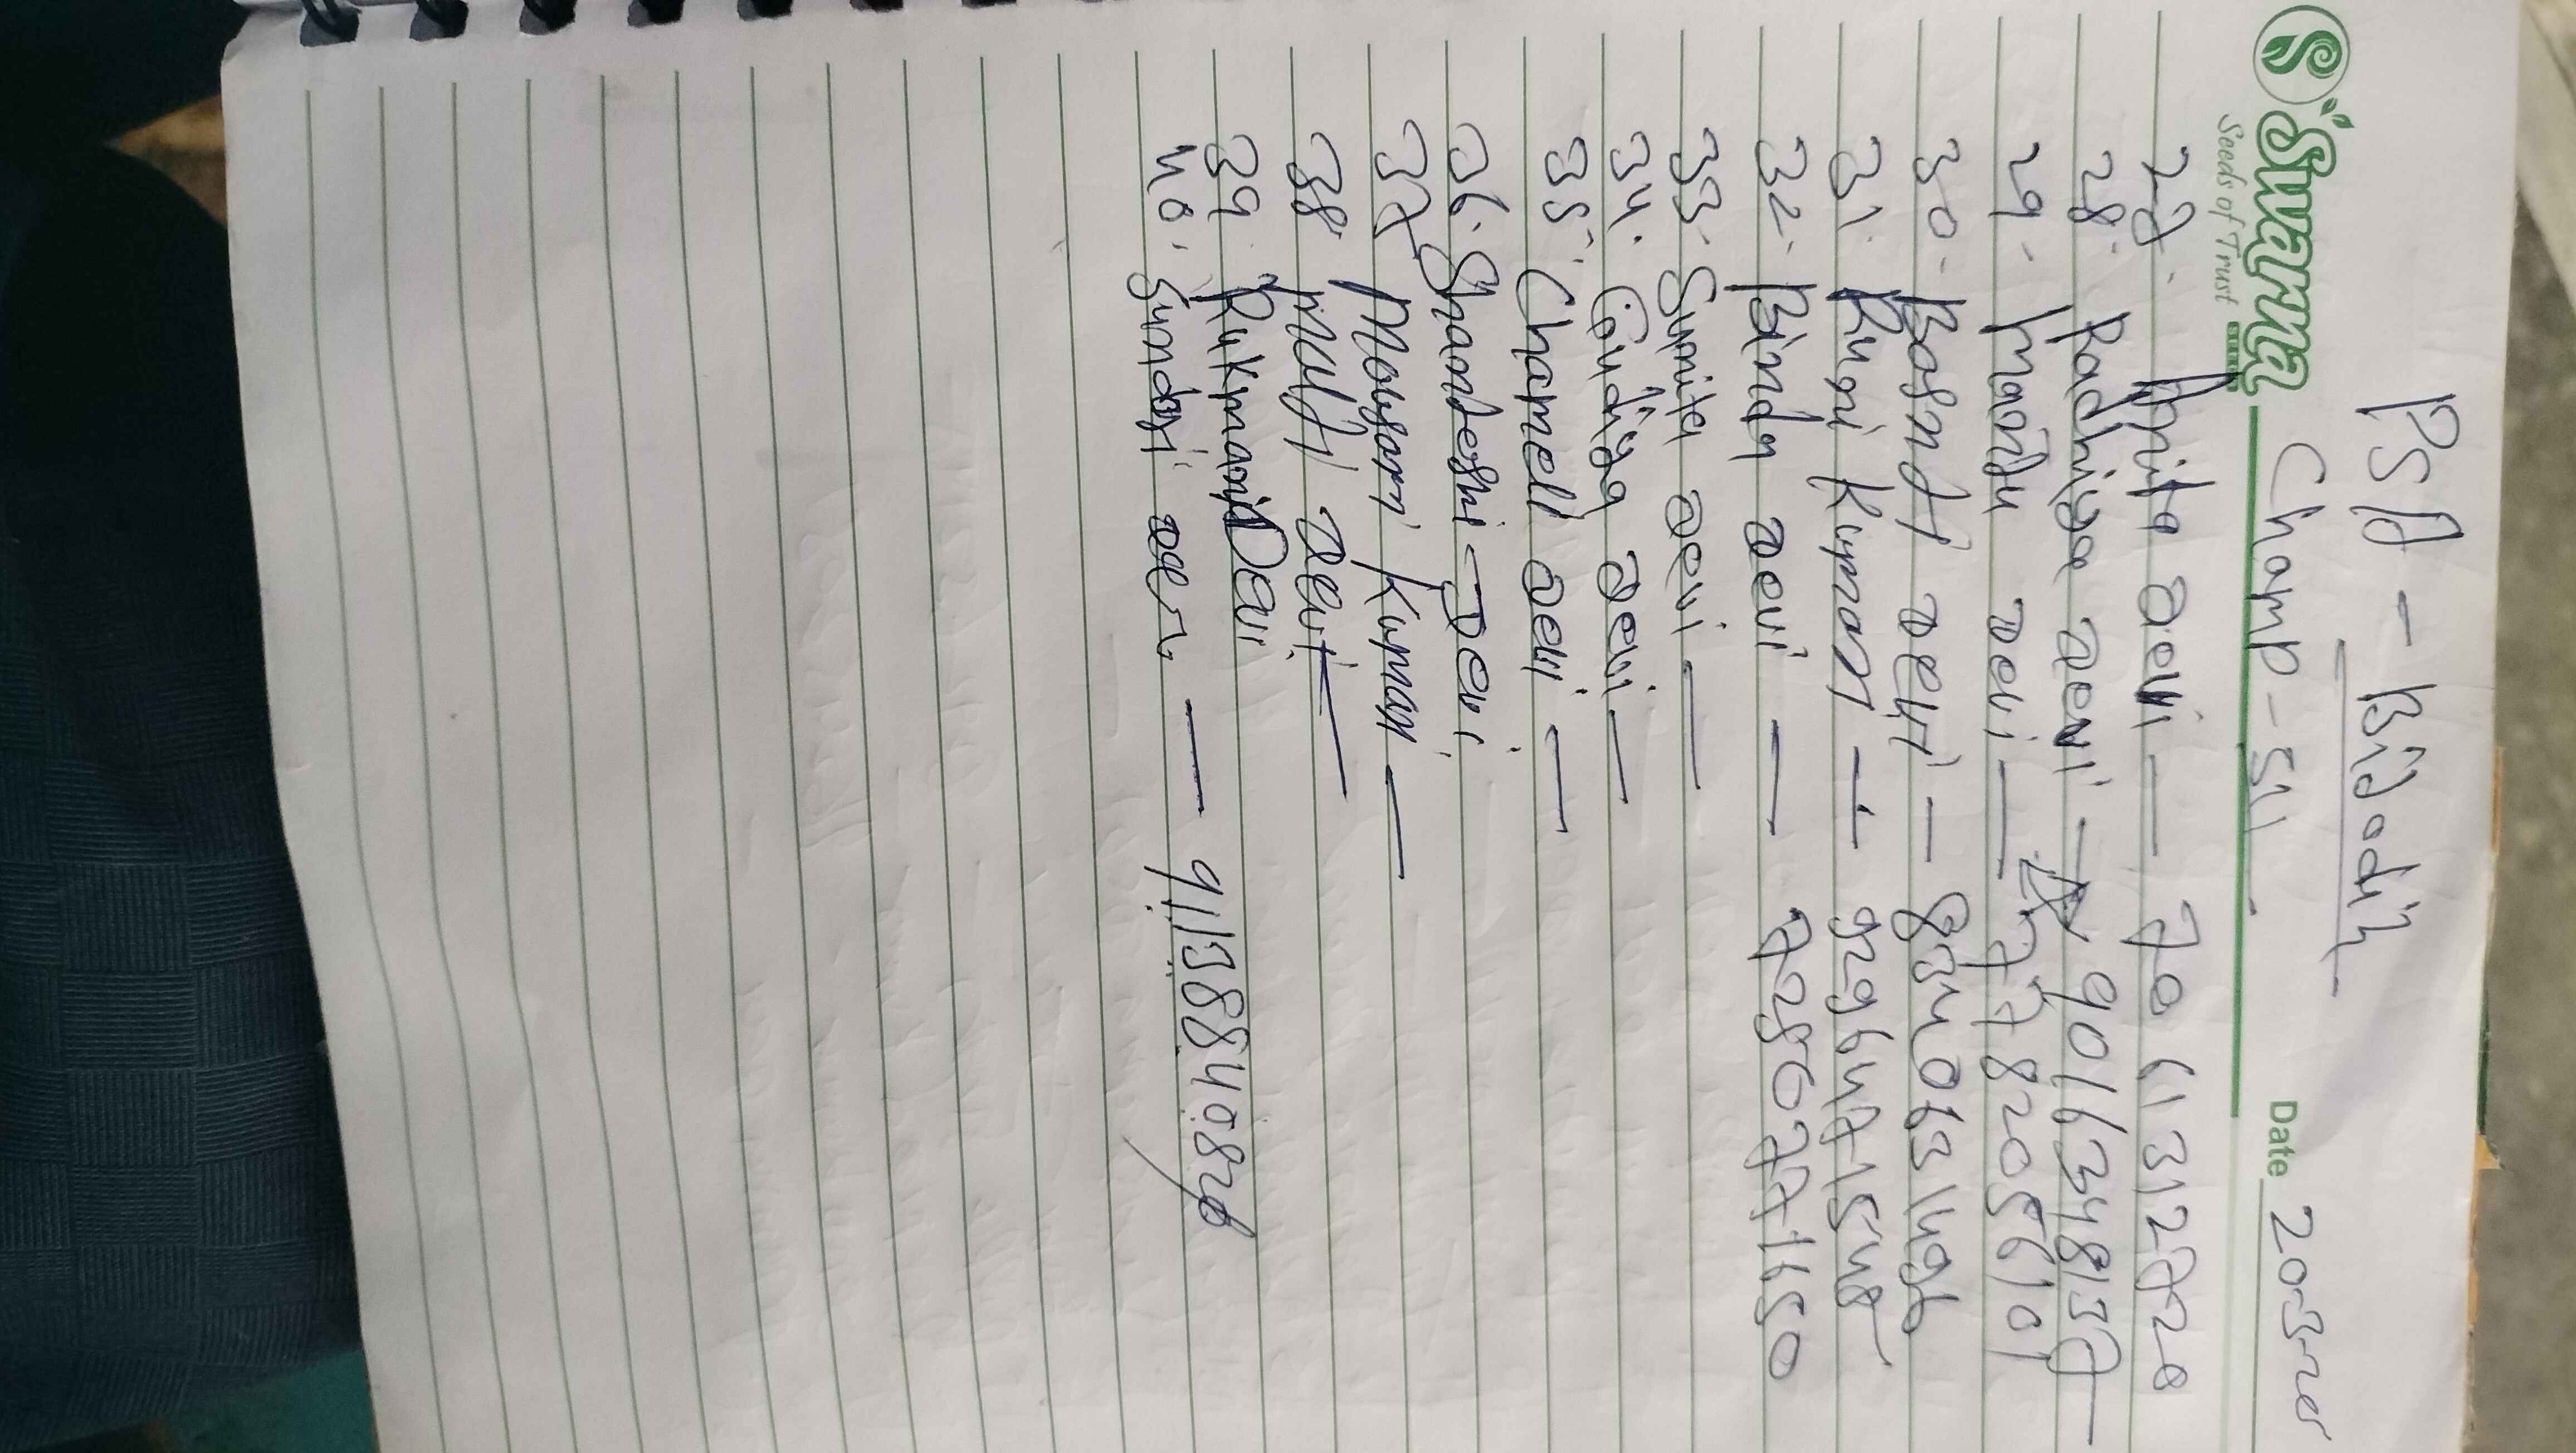 PSA - Bijadih
Svarna
Seeds of Trust
Champ - 51
Date 20-3-2025
27. Anita Devi - 7061312720
28. Radhiya Devi - 9016348137
29. Manju Devi - 7782056101
30. Basmti Devi - 8340631496
31. Runi Kumari - 9296471545
32. Binda Devi - 7250771650
33. Sunita Devi -
34. Gudiya Devi -
35. Chameli Devi -
36. Shandeshi - Devi
37. Mousam Kumari -
38. Devi -
39. Rukmani Devi
40. Sundari Devi - 9113884082